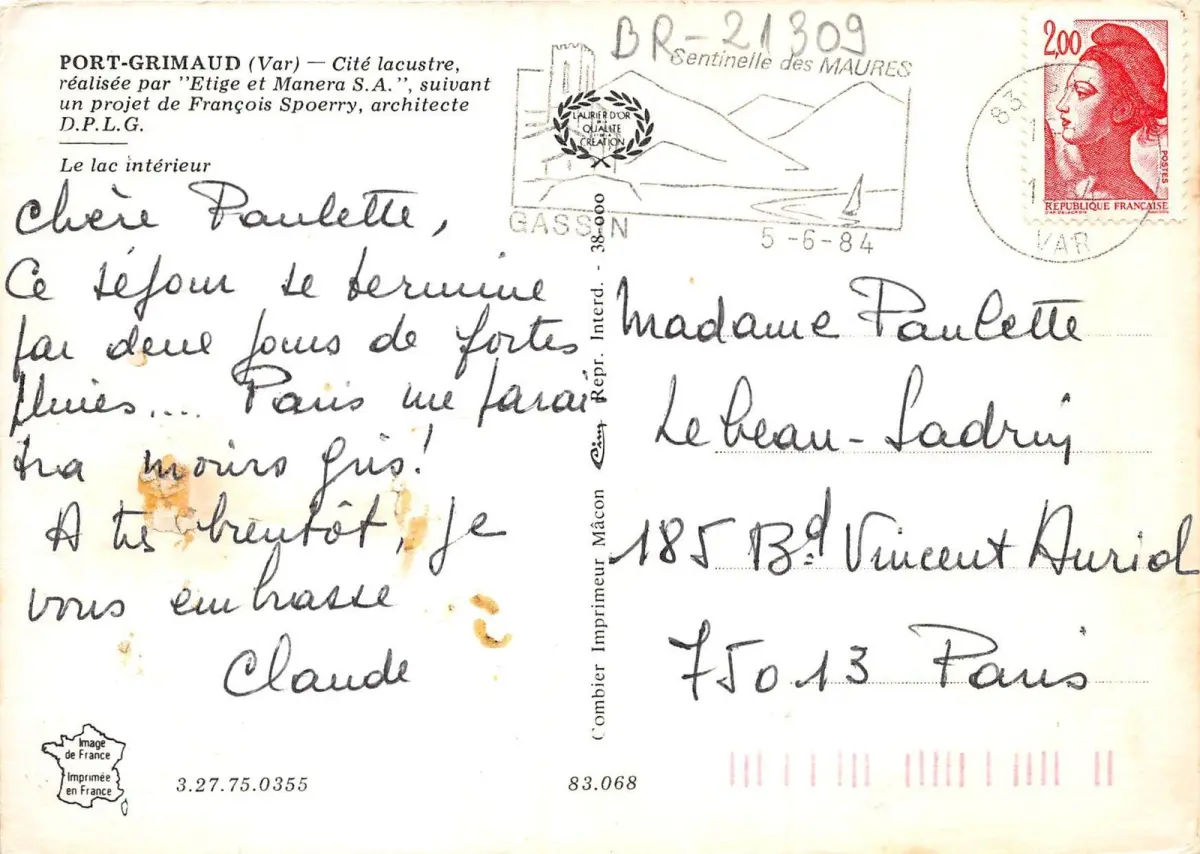 BR-21309
PORT-GRIMAUD (Var) — Cité lacustre,
réalisée par "Etige et Manera S.A.", suivant
un projet de François Spoerry, architecte
D.P.L.G.
Le lac intérieur
Chère Paulette,
Ce séjour se termine
par deux jours de fortes
pluies.... Paris me parai
tra moins gris!
A très bientôt, je
vous embrasse
Claude
Image
de France
Imprimée
en France
3.27.75.0355
83.068
Combier Imprimeur Mâcon
Repr. Interd. - 38-000
Sentinelle des MAURES
LAURIER D'OR
DE LA
QUALITE
CREATION
GASSIN
5-6-84
83
VAR
2,00
POSTES
REPUBLIQUE FRANÇAISE
Madame Paulette
Lebeau-Ladruj
185 Bd Vincent Auriol
75013 Paris